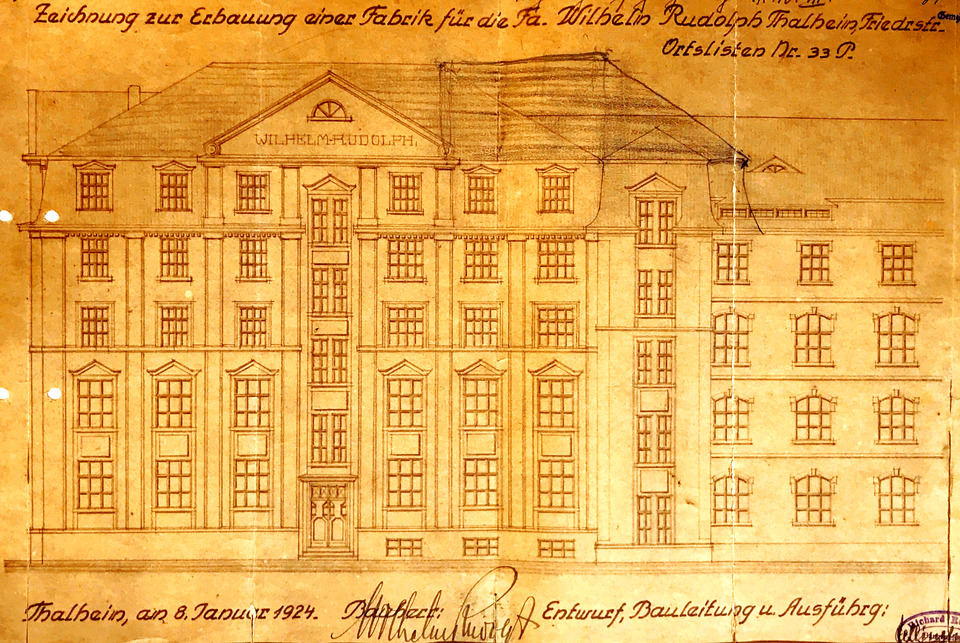 Zeichnung zur Erbauung einer Fabrik für die Fa. Wilhelm Rudolph Thalheim, Friedrstr.
Ortslisten Nr. 33 P.
WILHELM-RUDOLPH.
Thalheim, am 8. Januar 1924. Bauherr: Entwurf, Bauleitung u. Ausführg:
Richard